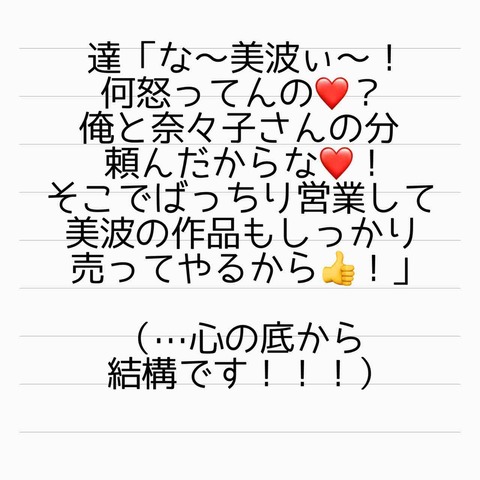 達「な〜美波ぃ〜！
何怒ってんの❤️？
俺と奈々子さんの分
頼んだからな❤️！
そこでばっちり営業して
美波の作品もしっかり
売ってやるから👍！」
（…心の底から
結構です！！！）